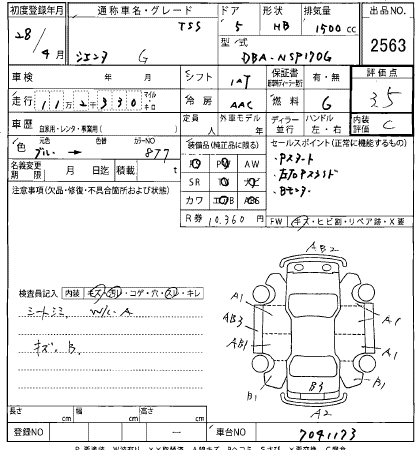 初度登録年月 通称車名・グレード ドア 形状 排気量 出品NO
28/4月 シエンタ G TSS 5 HB 1500cc 2563
型/式 DBA-NSP170G
車検 年 月 シフト IAT 保証書 有・無 評価点
走行 112330 マイル キロ 冷房 AAC 燃料 G 3.5
車歴 自家用・レンタ・事業用( ) 定員 人 外車モデル 年 ディーラー 並行 ハンドル 左・右 内装評価 C
色 元色 ブルー → 色替 カラーNO 877
装備品(純正品に限る) セールスポイント(正常に機能するもの)
名義変更期限 月 日迄 積載 t
PS PW AW
SR TV ナビ
カワ エアB ABS
・Pスタート
・左Pスライド
・Bモニター
注意事項(欠品・修復・不具合箇所および状態)
R券 10,360円 FW キズ・ヒビ割・リペア跡・X要
検査員記入 内装 キズ・汚れ・コゲ・穴・スレ・キレ
シートシミ W/C A
キズ B
AB2
A1 A1
AB3
AB1 A1
B1 B4 B1
A2
長さ cm 幅 cm 高さ cm
登録NO — 車台NO 7041173